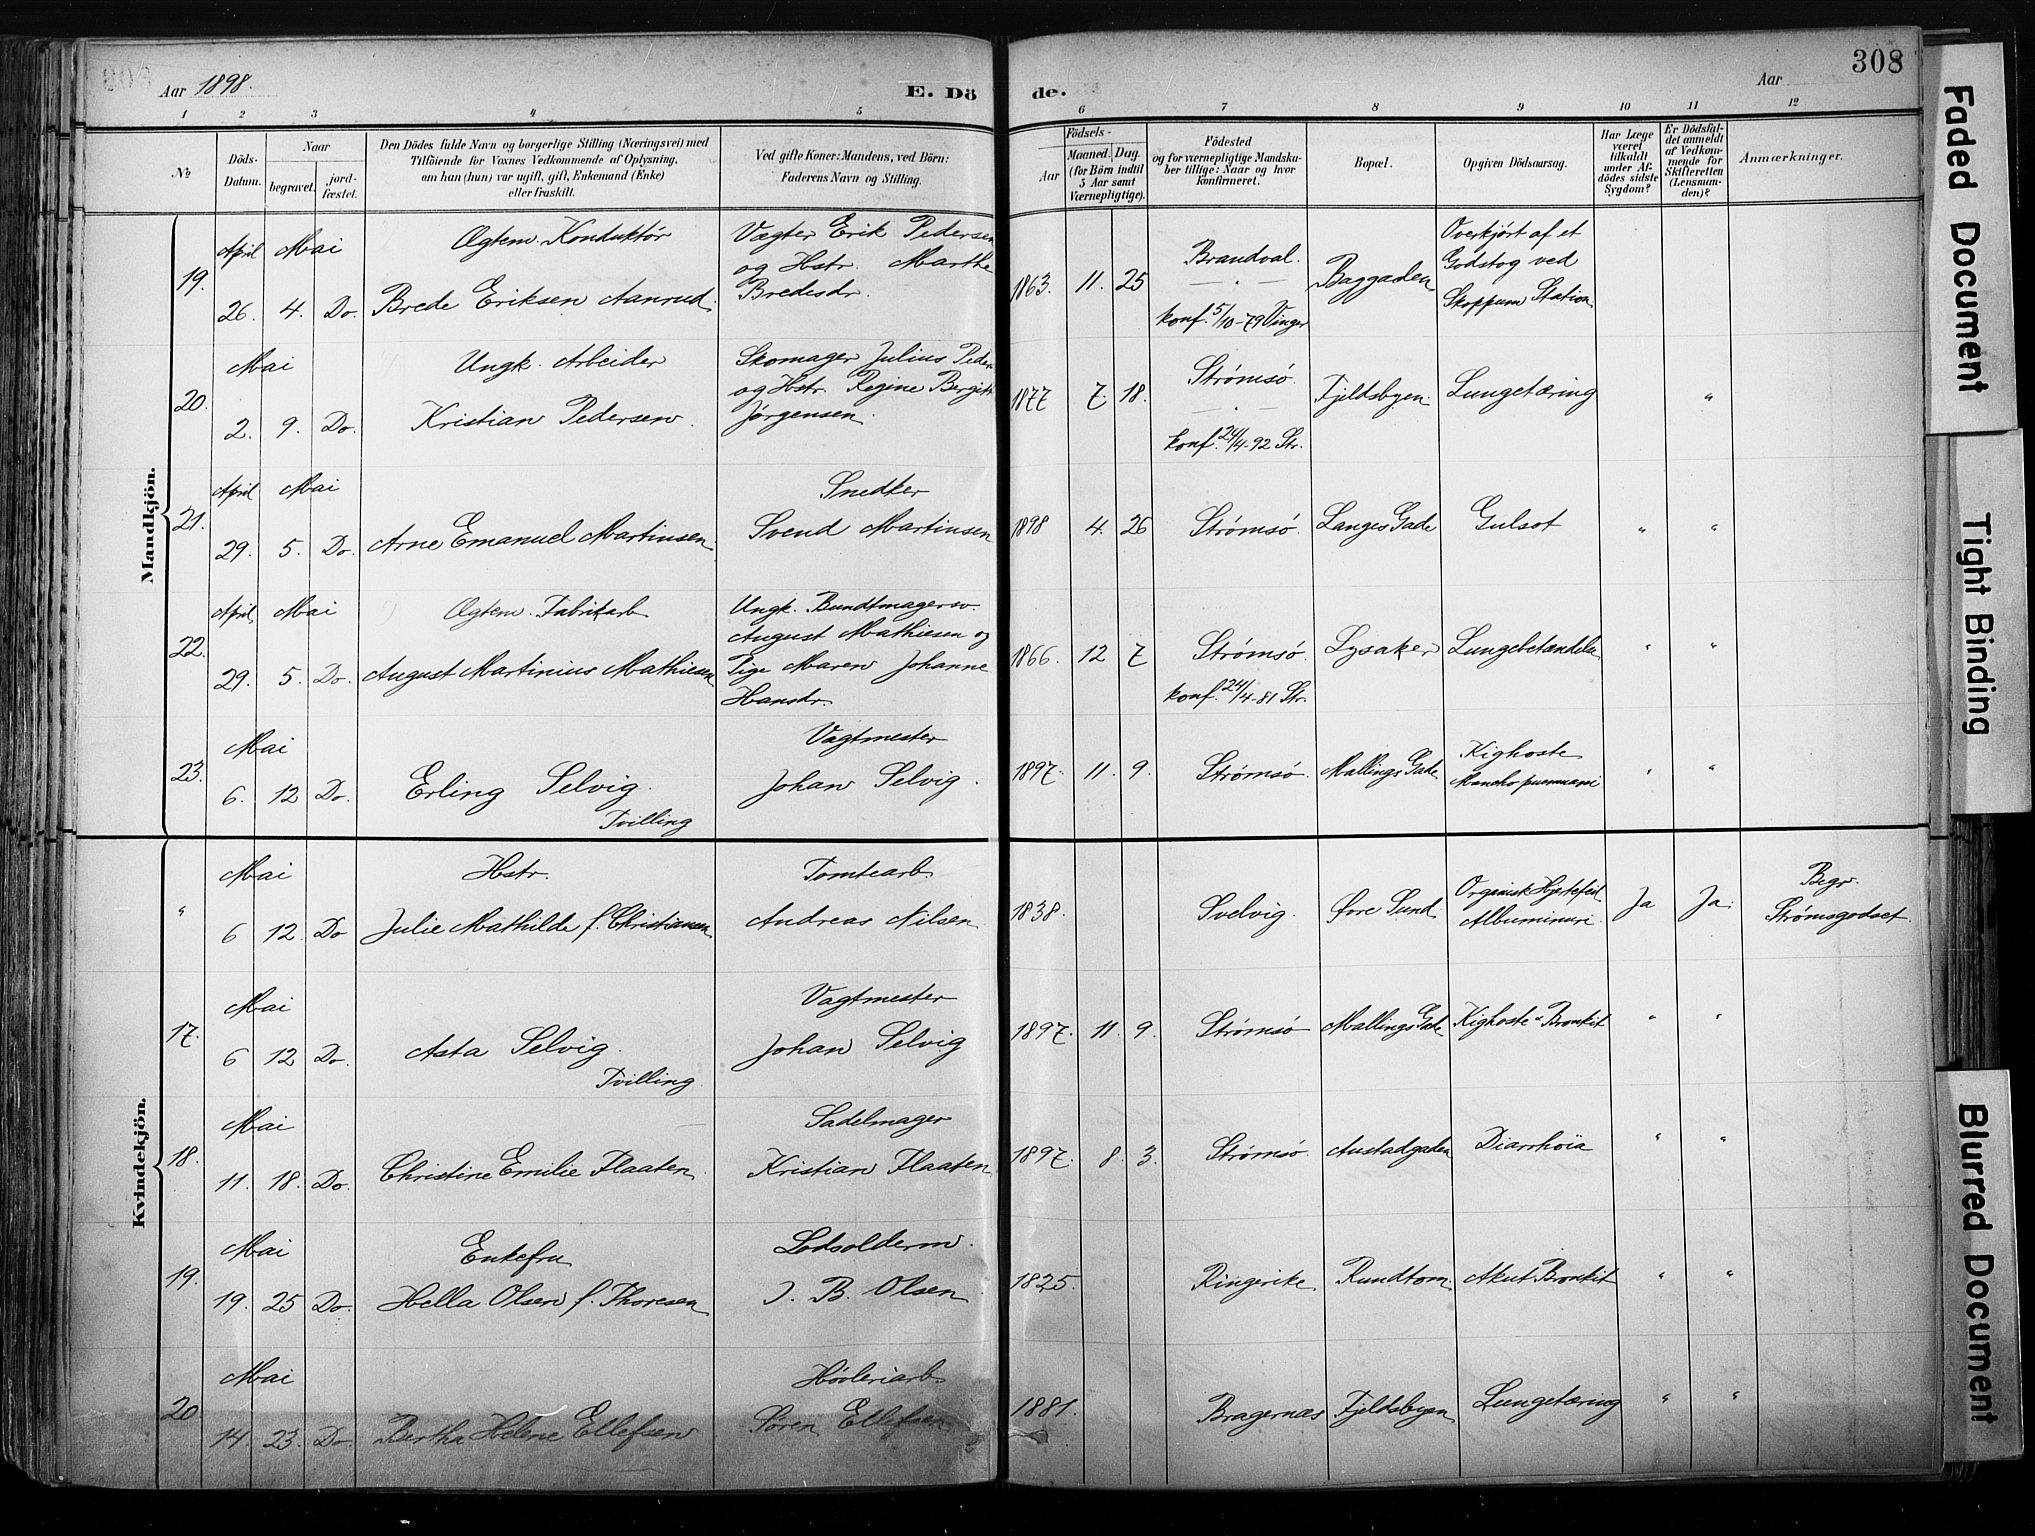 308
Aar 1898.
E. Dö de.
Aar
1 2 3 4 5 6 7 8 9 10 11 12
№
Döds-Datum.
Naar
begravet. jord-fæstet.
Den Dödes fulde Navn og borgerlige Stilling (Næringsvei) med
Tilföiende for Voxnes Vedkommende af Oplysning,
om han (hun) var ugift, gift, Enkemand (Enke)
eller fraskilt.
Ved gifte Koner: Mandens, ved Börn:
Faderens Navn og Stilling.
Födsels-
Aar
Maaned. Dag.
(for Börn indtil
5 Aar samt
Værnepligtige).
Födested
og for værnepligtige Mandsku-
ber tillige: Naar og hvor
konfirmeret.
Bopæl.
Opgiven Dödsaarsag.
Har Læge
været
tilkaldt
under Af-
dödes sidste
Sygdom?
Er Dödsfal-
det anmeldt
af Vedkom-
mende for
Skifteretten
(Lensman-
den)?
Anmærkninger.
Mandkjön.
April Mai Ægtem. Konduktør Vagter Erik Pedersen Overkjørt af et
19. og Hstr. Marthe Brandval. Godstog ved
26. 4. Do. Brede Eriksen Aanrud. Bredesdr. 1863. 11. 25 — " — Baggaden Skoppum Station
konf. 5/10-79 Vinger
Mai Ungk. Arbeider Skomager Julius Peders
20. og Hstr. Regine Bergitte 1877 7. 18. Strømsø. Fjeldsbyen. Lungetæring "
2. 9. Do. Kristian Pedersen. Jørgensen. — " —
konf. 24/4-92 Str.
April Mai Snedker
21. 29. 5. Do. Arne Emanuel Martinsen. Svend Martinsen 1898 4. 26 Strømsø. Langes Gade Gulsot " "
April Mai Ægtem. Fabrikarb Ungk. Bundtmagersv.
22. August Mathiesen og 1866. 12 7 Strømsø. Lysaker Lungebetændelse " "
29. 5. Do. August Martinius Mathiesen Pige Maren Johanne
Hansdr. konf. 24/4-81 Str.
Mai Vagtmester Kighoste
23. 6. 12 Do. Erling Selvig. Johan Selvig. 1897. 11. 9. Strømsø. Mallings Gade " "
Tvilling
Kvindekjön.
Mai Hstr. Tomtearb. Organisk Hjertefeil Begr.
" 6 12. Do Julie Mathilde f. Christiansen Andreas Nilsen 1838. Svelvig. Øvre Sund. Albuminuri Ja Ja. Strømsgodset
Mai Vagtmester
17. 6 12 Do. Asta Selvig. Johan Selvig 1897. 11. 9. Strømsø Mallings Gade Kighoste " Bronkit " "
Tvilling
Mai Sadelmager
18. 11. 18. Do. Christine Emilie Flaaten. Kristian Flaaten 1897. 8. 3. Strømsø. Austadgaden Diarrhøia " "
Mai Enkefru Lodsolderm.
19. 19. 25 Do. Hella Olsen f. Thoresen J. B. Olsen 1825. Ringerike Rundtom. Akut Bronkit " "
Mai Høvleriarb.
20 14 23. Do Bertha Helene Ellefsen Søren Ellefsen 1881. Bragernæs Fjeldsbyen Lungetæring " "
Faded Document
Tight Binding
Blurred Document